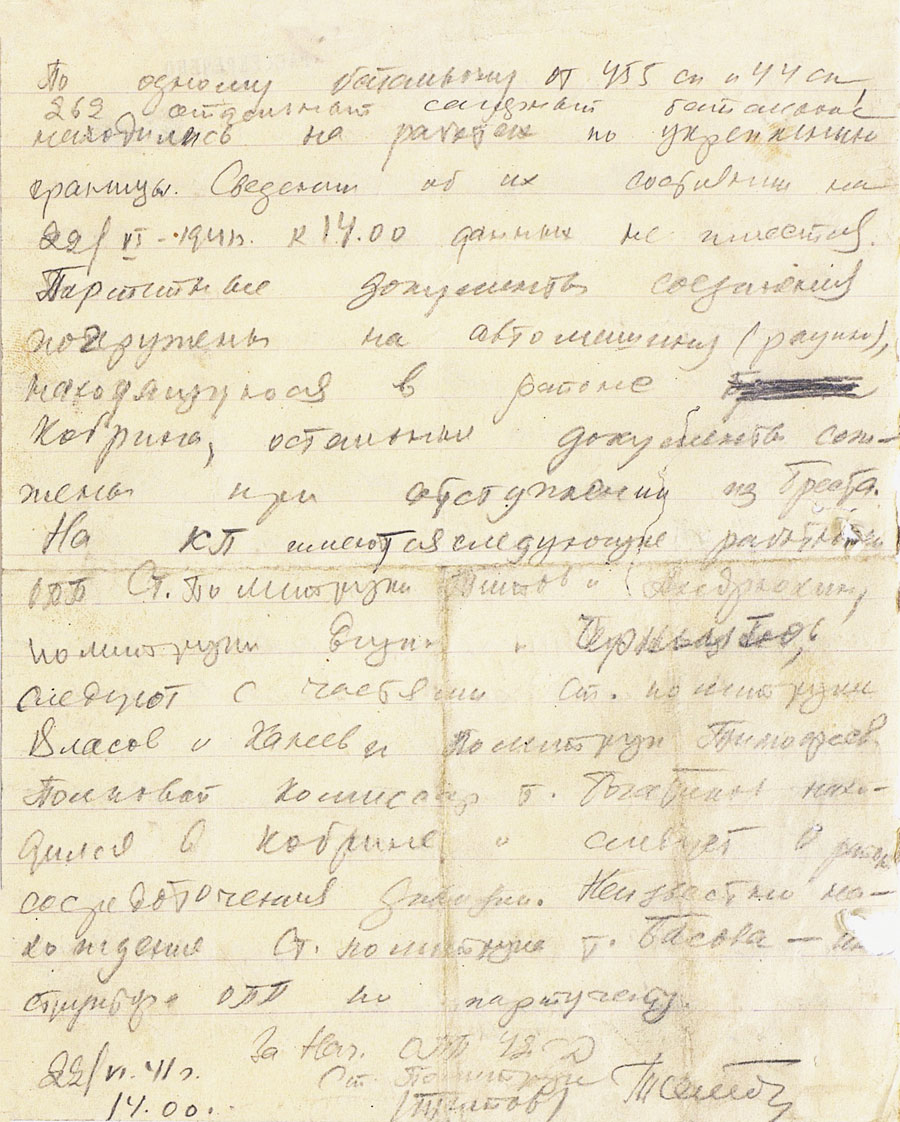 По одному батальону от 455 сп и 44 сп,
262 отдельный саперный батальон
находились на работах по укреплению
границы. Сведений об их состоянии на
22/VI-1941г. к 14.00 данных не имеется.
Партийные документы соединения
погружены на автомашину (рацию),
находящуюся в районе
Кобрина, остальные документы сож-
жены при отступлении из Бреста.
На КП имеются следующие работники
ОПП Ст. Политруки Титов и
политруки и
следуют с частями ст. политруки
Власов и Ханеев и политрук Тимофеев.
Полковой комиссар т. Богатиков нахо-
дился в Кобрине и следует в район
сосредоточения дивизии. Неизвестно на-
хождение Ст. политрука т. Басова – ин-
структора ОПП по партучету.
За Нач. ОПП 42 сд
22/VI.41г. Ст. Политрук
14.00. (Титов)